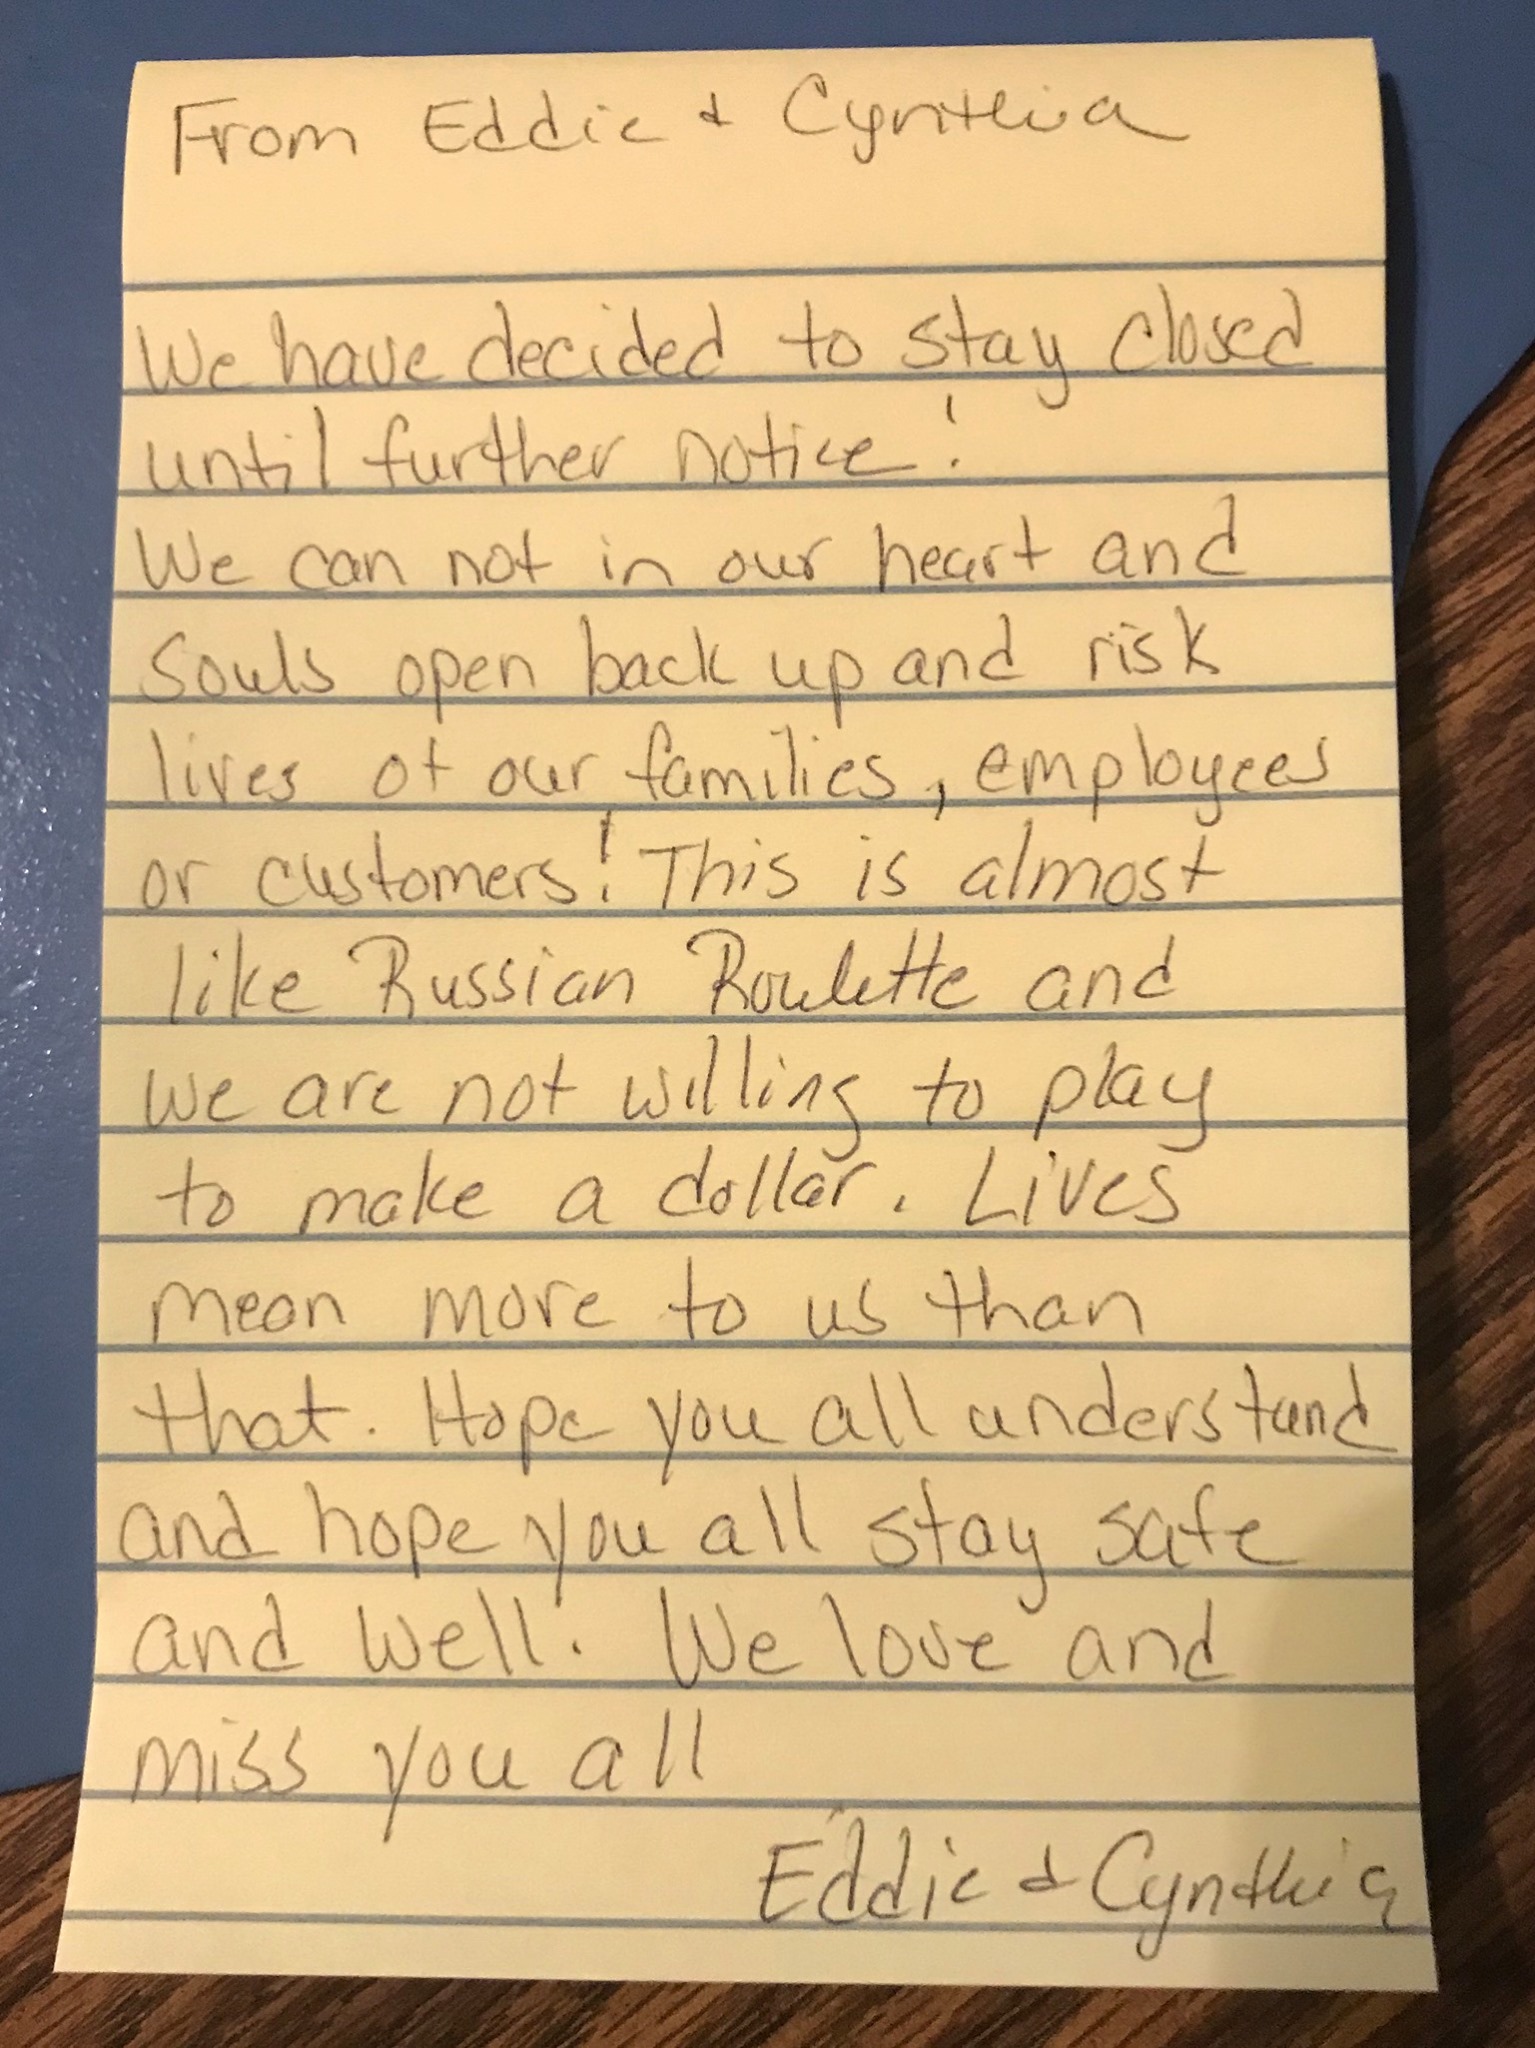 From Eddie & Cynthia
We have decided to stay closed
until further notice!
We can not in our heart and
souls open back up and risk
lives of our families, employees
or customers! This is almost
like Russian Roulette and
we are not willing to play
to make a dollar. Lives
mean more to us than
that. Hope you all understand
and hope you all stay safe
and well. We love and
miss you all
Eddie & Cynthia